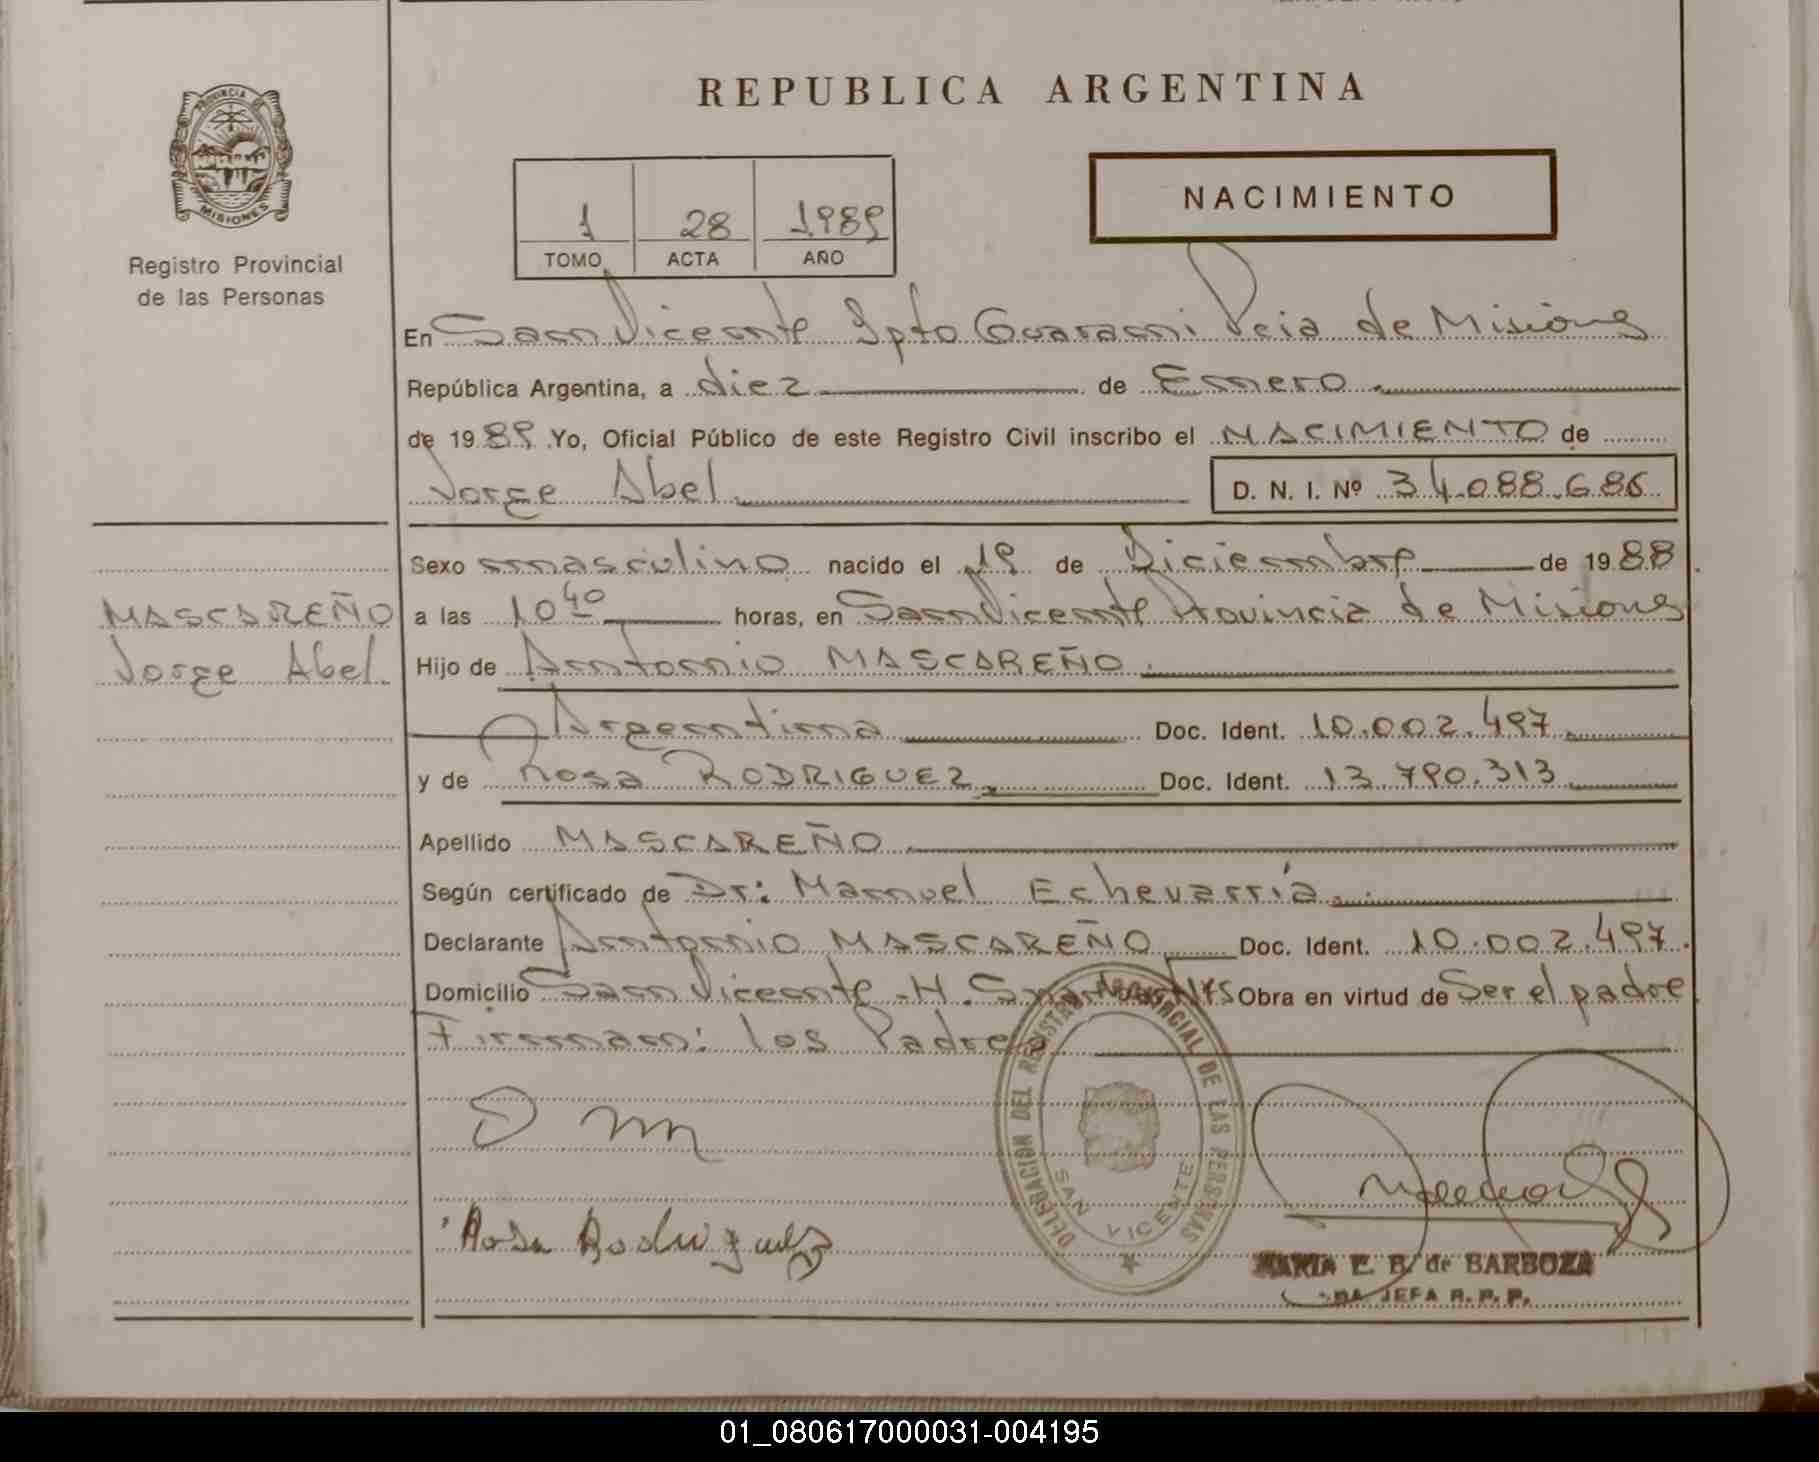 REPUBLICA ARGENTINA
PROVINCIA DE
MISIONES
Registro Provincial
de las Personas
1 28 1989
TOMO ACTA AÑO
NACIMIENTO
En San Vicente Dpto Guarani Pcia de Misiones
República Argentina, a diez de Enero
de 1989 Yo, Oficial Público de este Registro Civil inscribo el NACIMIENTO de
Jorge Abel D. N. I. Nº 34.088.686
MASCAREÑO
Jorge Abel
Sexo masculino nacido el 19 de Diciembre de 1988
a las 10 40 horas, en San Vicente Provincia de Misiones
Hijo de Antonio MASCAREÑO
Argentina Doc. Ident. 10.002.497
y de Rosa RODRIGUEZ Doc. Ident. 13.790.313
Apellido MASCAREÑO
Según certificado de Dr: Manuel Echevarría
Declarante Antonio MASCAREÑO Doc. Ident. 10.002.497
Domicilio San Vicente Obra en virtud de Ser el padre
Firman: los Padres
DELEGACION DEL REGISTRO PROVINCIAL DE LAS PERSONAS
SAN VICENTE
Rosa Rodriguez
MARIA E. B. de BARBOZA
JEFA R. P. P.
01_080617000031-004195